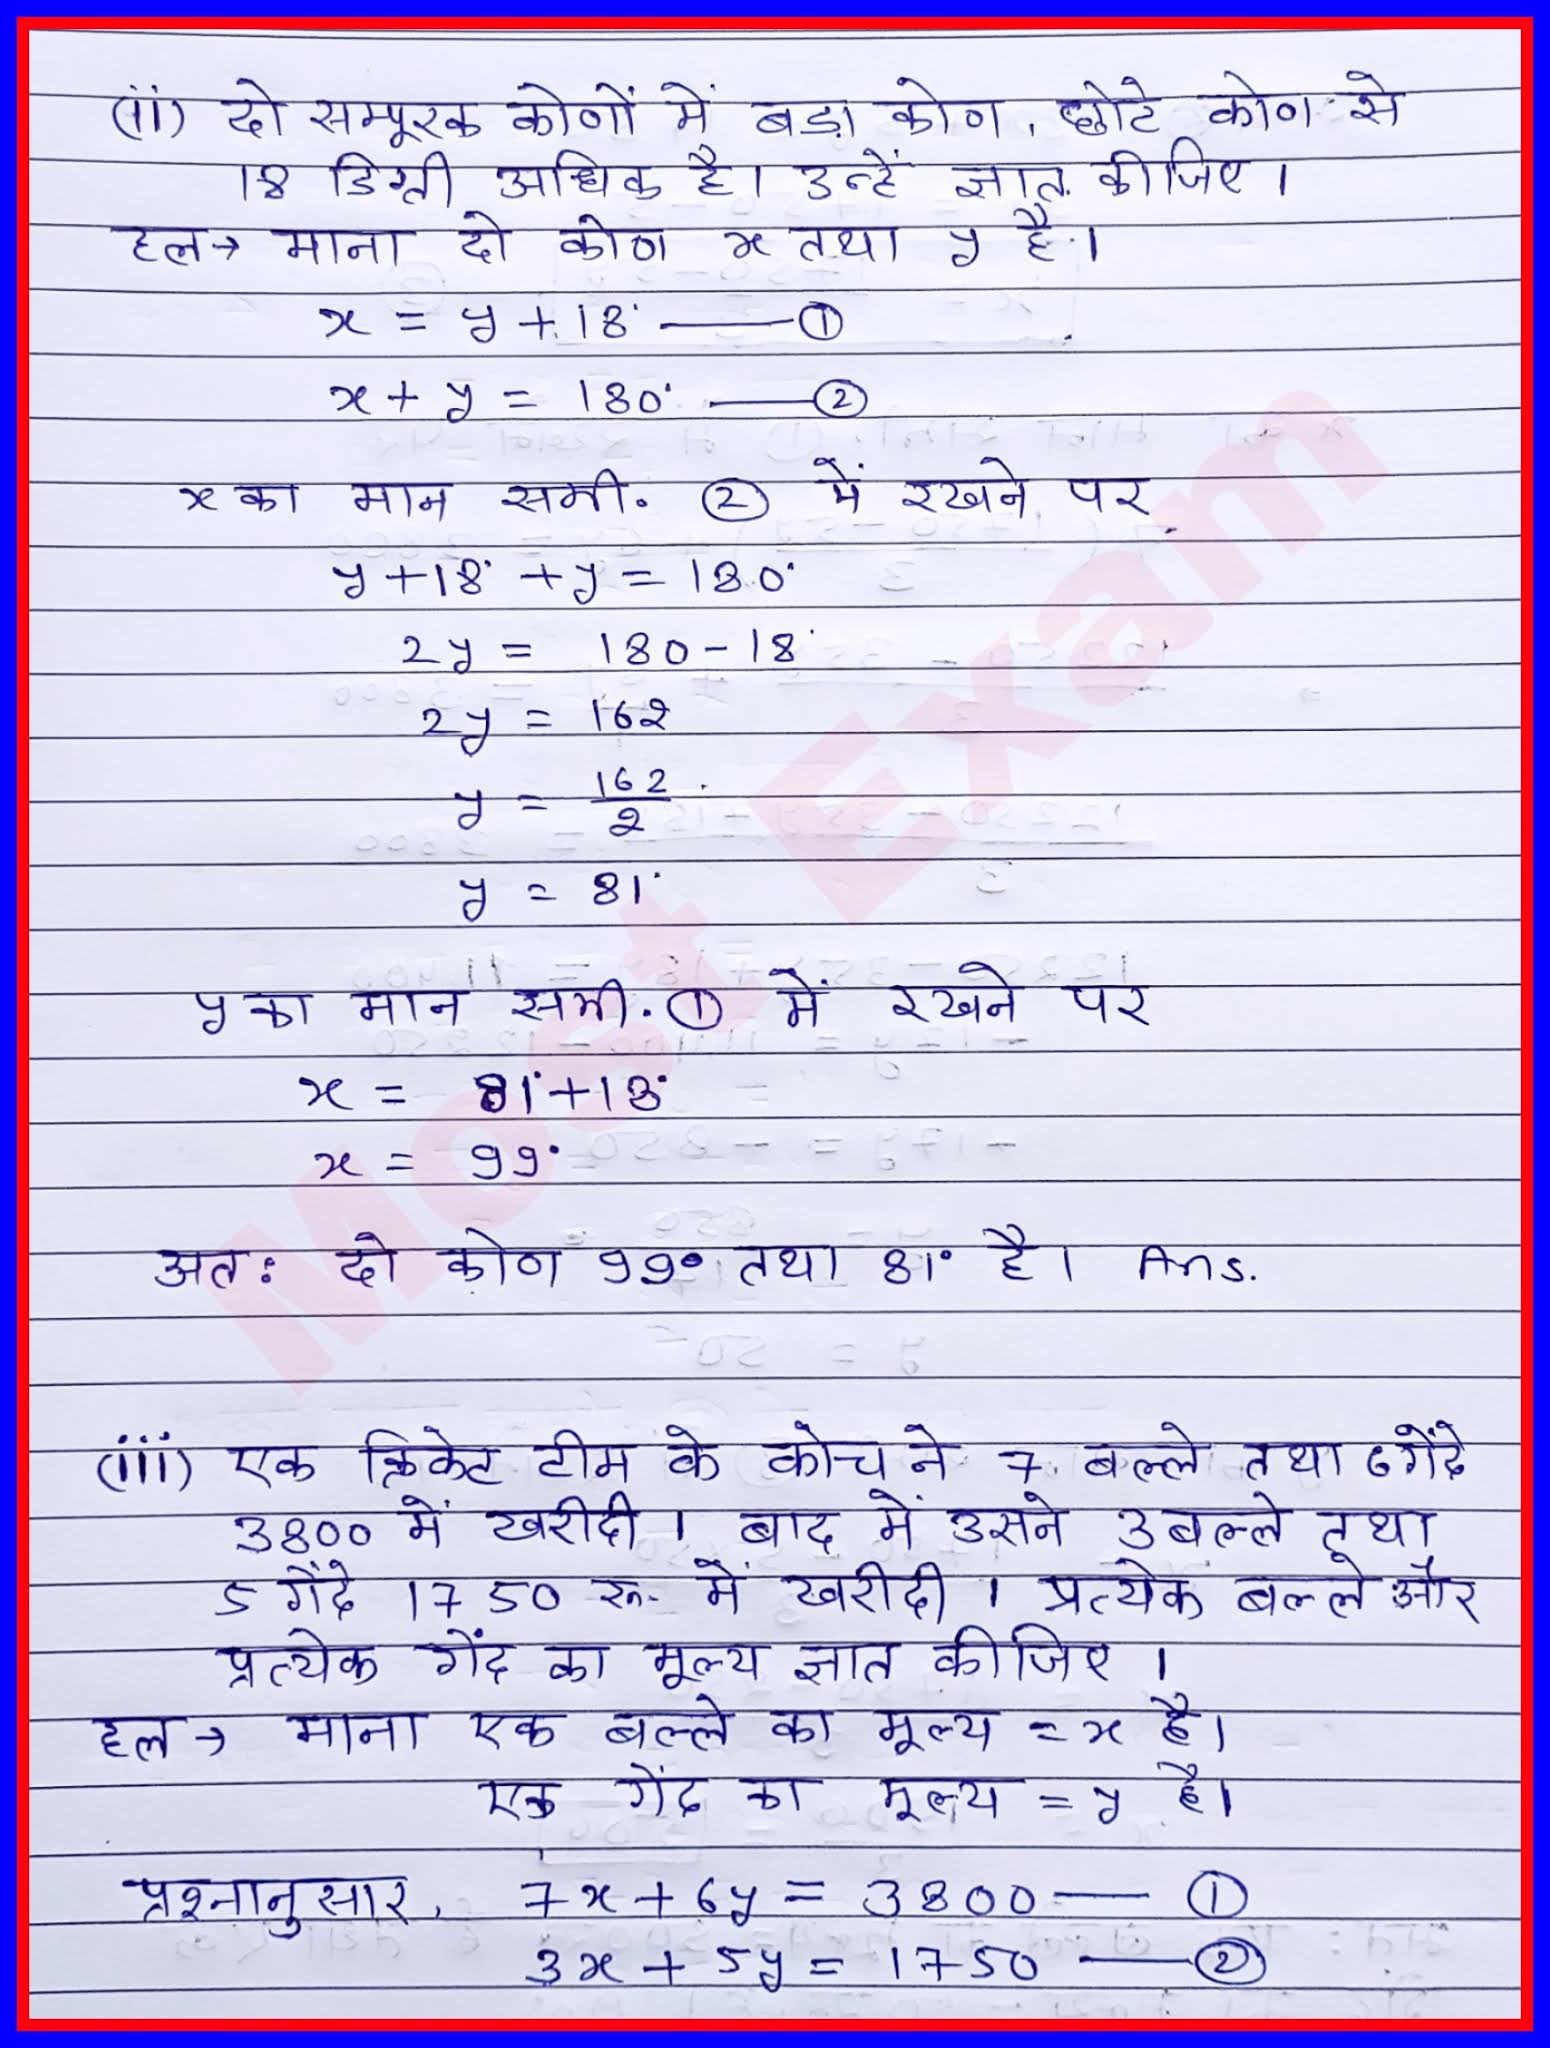 (ii) दो सम्पूरक कोणों में बड़ा कोण, छोटे कोण से
18 डिग्री अधिक है। उन्हें ज्ञात कीजिए।
हल→ माना दो कोण x तथा y है।
x = y + 18° —— ①
x + y = 180° —— ②
x का मान समी. ② में रखने पर
y + 18° + y = 180°
2y = 180 - 18°
2y = 162
y = 162/2
y = 81°
y का मान समी. ① में रखने पर
x = 81° + 18°
x = 99°
अतः दो कोण 99° तथा 81° है। Ans.
(iii) एक क्रिकेट टीम के कोच ने 7 बल्ले तथा 6 गेंदे
3800 में खरीदी। बाद में उसने 3 बल्ले तथा
5 गेंदे 1750 रू. में खरीदी। प्रत्येक बल्ले और
प्रत्येक गेंद का मूल्य ज्ञात कीजिए।
हल → माना एक बल्ले का मूल्य = x है।
एक गेंद का मूल्य = y है।
प्रश्नानुसार, 7x + 6y = 3800 —— ①
3x + 5y = 1750 —— ②
Most Exam